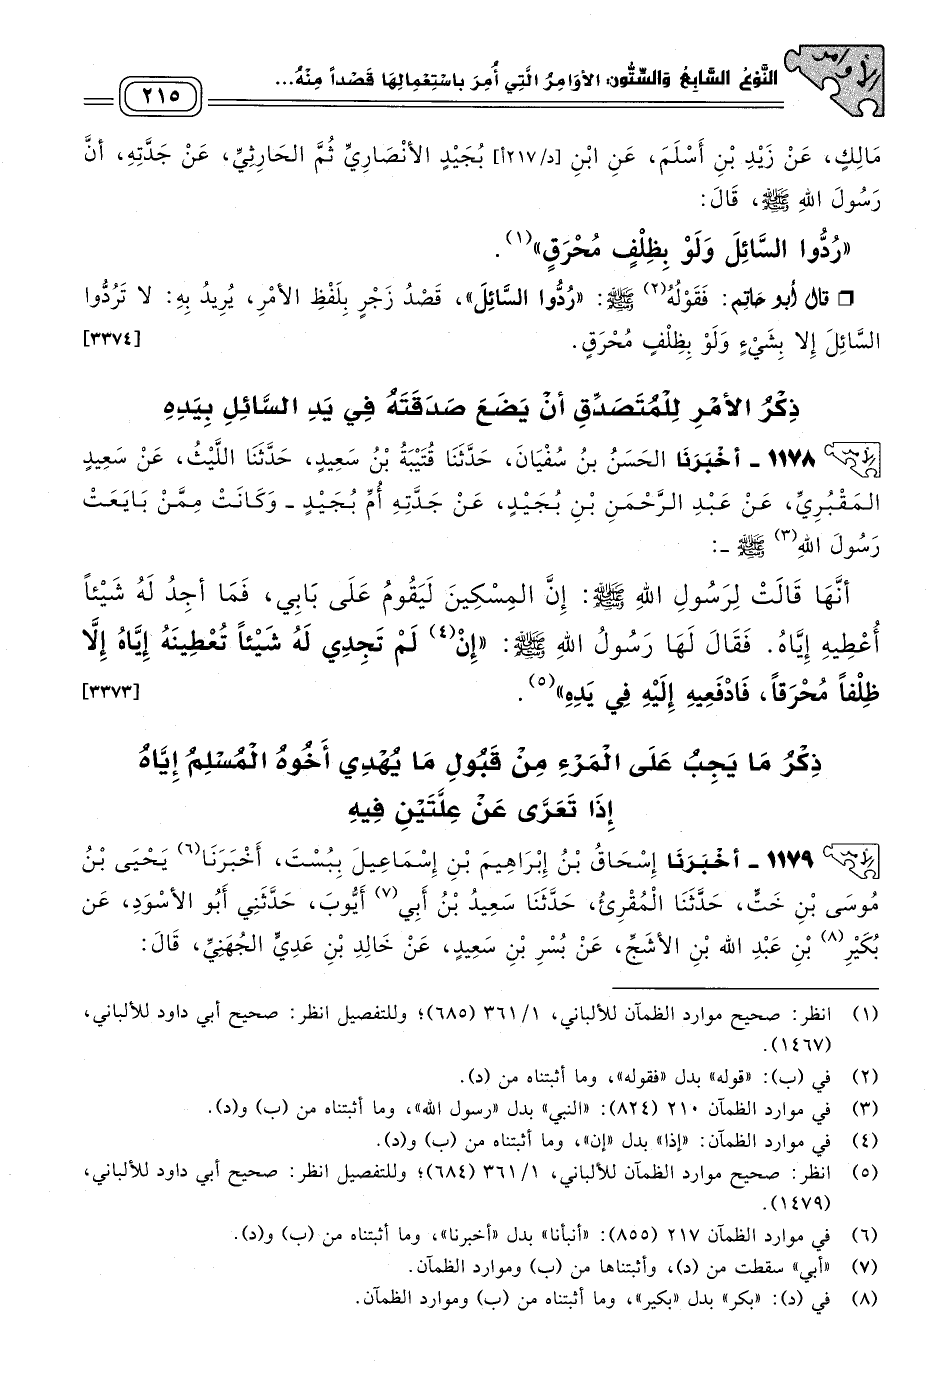 الأوامر
النَّوْعُ السَّابِعُ وَالسِّتُّونَ: الأَوَامِرُ الَّتِي أُمِرَ بِاسْتِعْمَالِهَا قَصْداً مِنْهُ...
٢١٥
مَالِكٍ، عَنْ زَيْدِ بْنِ أَسْلَمَ، عَنِ ابْنِ [د/٢١٧أ] بُجَيْدٍ الأَنْصَارِيِّ ثُمَّ الحَارِثِيِّ، عَنْ جَدَّتِهِ، أَنَّ
رَسُولَ اللهِ ﷺ، قَالَ:
«رُدُّوا السَّائِلَ وَلَوْ بِظِلْفٍ مُحْرَقٍ»(١).
❒ قال أبو حاتم: فَقَوْلُهُ(٢) ﷺ: «رُدُّوا السَّائِلَ»، قَصْدُ زَجْرٍ بِلَفْظِ الأَمْرِ، يُرِيدُ بِهِ: لا تَرُدُّوا
السَّائِلَ إِلا بِشَيْءٍ وَلَوْ بِظِلْفٍ مُحْرَقٍ. [٣٣٧٤]
ذِكْرُ الأَمْرِ لِلْمُتَصَدِّقِ أَنْ يَضَعَ صَدَقَتَهُ فِي يَدِ السَّائِلِ بِيَدِهِ
١١٧٨ ـ أَخْبَرَنَا الحَسَنُ بنُ سُفْيَانَ، حَدَّثَنَا قُتَيْبَةُ بْنُ سَعِيدٍ، حَدَّثَنَا اللَّيْثُ، عَنْ سَعِيدٍ
المَقْبُرِيِّ، عَنْ عَبْدِ الرَّحْمَنِ بْنِ بُجَيْدٍ، عَنْ جَدَّتِهِ أُمِّ بُجَيْدٍ ـ وَكَانَتْ مِمَّنْ بَايَعَتْ
رَسُولَ اللهِ(٣) ﷺ ـ:
أَنَّهَا قَالَتْ لِرَسُولِ اللهِ ﷺ: إِنَّ المِسْكِينَ لَيَقُومُ عَلَى بَابِي، فَمَا أَجِدُ لَهُ شَيْئاً
أُعْطِيهِ إِيَّاهُ. فَقَالَ لَهَا رَسُولُ اللهِ ﷺ: «إِنْ(٤) لَمْ تَجِدِي لَهُ شَيْئاً تُعْطِينَهُ إِيَّاهُ إِلَّا
ظِلْفاً مُحْرَقاً، فَادْفَعِيهِ إِلَيْهِ فِي يَدِهِ»(٥). [٣٣٧٣]
ذِكْرُ مَا يَجِبُ عَلَى الْمَرْءِ مِنْ قَبُولِ مَا يُهْدِي أَخُوهُ الْمُسْلِمُ إِيَّاهُ
إِذَا تَعَرَّى عَنْ عِلَّتَيْنِ فِيهِ
١١٧٩ ـ أَخْبَرَنَا إِسْحَاقُ بْنُ إِبْرَاهِيمَ بْنِ إِسْمَاعِيلَ بِبُسْتَ، أَخْبَرَنَا(٦) يَحْيَى بْنُ
مُوسَى بْنِ خَتٍّ، حَدَّثَنَا الْمُقْرِئُ، حَدَّثَنَا سَعِيدُ بْنُ أَبِي(٧) أَيُّوبَ، حَدَّثَنِي أَبُو الأَسْوَدِ، عَن
بُكَيْرِ(٨) بْنِ عَبْدِ الله بْنِ الأَشَجِّ، عَنْ بُسْرِ بْنِ سَعِيدٍ، عَنْ خَالِدِ بْنِ عَدِيٍّ الجُهَنِيِّ، قَالَ:
(١) انظر: صحيح موارد الظمآن للألباني، ١/ ٣٦١ (٦٨٥)؛ وللتفصيل انظر: صحيح أبي داود للألباني،
(١٤٦٧).
(٢) في (ب): «قوله» بدل «فقوله»، وما أثبتناه من (د).
(٣) في موارد الظمآن ٢١٠ (٨٢٤): «النبي» بدل «رسول الله»، وما أثبتناه من (ب) و(د).
(٤) في موارد الظمآن: «إذا» بدل «إن»، وما أثبتناه من (ب) و(د).
(٥) انظر: صحيح موارد الظمآن للألباني، ١/ ٣٦١ (٦٨٤)؛ وللتفصيل انظر: صحيح أبي داود للألباني،
(١٤٧٩).
(٦) في موارد الظمآن ٢١٧ (٨٥٥): «أنبأنا» بدل «أخبرنا»، وما أثبتناه من (ب) و(د).
(٧) «أبي» سقطت من (د)، وأثبتناها من (ب) وموارد الظمآن.
(٨) في (د): «بكر» بدل «بكير»، وما أثبتناه من (ب) وموارد الظمآن.